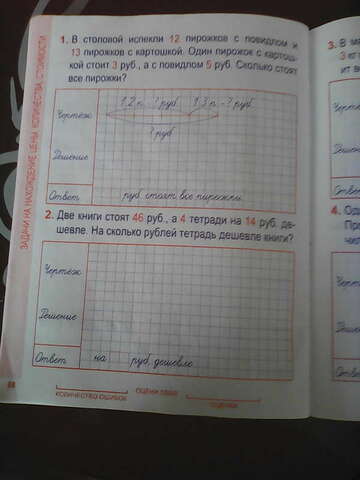 ЗАДАЧИ НА НАХОЖДЕНИЕ ЦЕНЫ, КОЛИЧЕСТВА, СТОИМОСТИ
1. В столовой испекли 12 пирожков с повидлом и
13 пирожков с картошкой. Один пирожок с картош-
кой стоит 3 руб., а с повидлом 5 руб. Сколько стоят
все пирожки?
Чертёж
12 п. - ? руб. 13 п. - ? руб.
? руб.
Решение
Ответ руб. стоят все пирожки.
2. Две книги стоят 46 руб., а 4 тетради на 14 руб. де-
шевле. На сколько рублей тетрадь дешевле книги?
Чертёж
Решение
Ответ на руб. дешевле.
КОЛИЧЕСТВО ОШИБОК
ОЦЕНИ СЕБЯ
ОЦЕНКА
3. В ма
3 кг
ит в
4. Од
Пр
чи